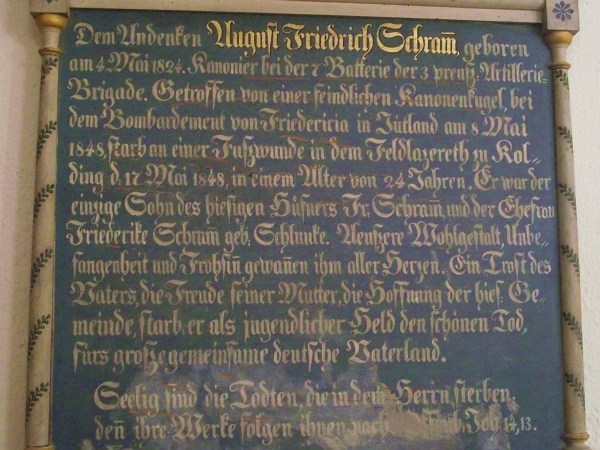 Dem Andenken August Friedrich Schram̄, geboren
am 4 Mai 1824. Kanonier bei der 7 Batterie der 3 preuß: Artillerie-
Brigade. Getroffen von einer feindlichen Kanonenkugel, bei
dem Bombardement von Friedericia in Jütland am 8 Mai
1848, starb an einer Fußwunde in dem Feldlazereth zu Kol-
ding d. 17 Mai 1848, in einem Alter von 24 Jahren. Er war der
einzige Sohn des hiesigen Hüfners Fr. Schram̄, und der Ehefrau
Friederike Schram̄ geb. Schlunke. Aeußere Wohlgestalt, Unbe-
fangenheit und Frohsin̄ gewan̄en ihm aller Herzen. Ein Trost des
Vaters, die Freude seiner Mutter, die Hoffnung der hies: Ge-
meinde, starb er als jugendlicher Held den schönen Tod,
fürs große gemeinsame deutsche Vaterland.
Seelig sind die Todten, die in dem Herrn sterben;
den̄ ihre Werke folgen ihnen nach. Joh 14, 13.